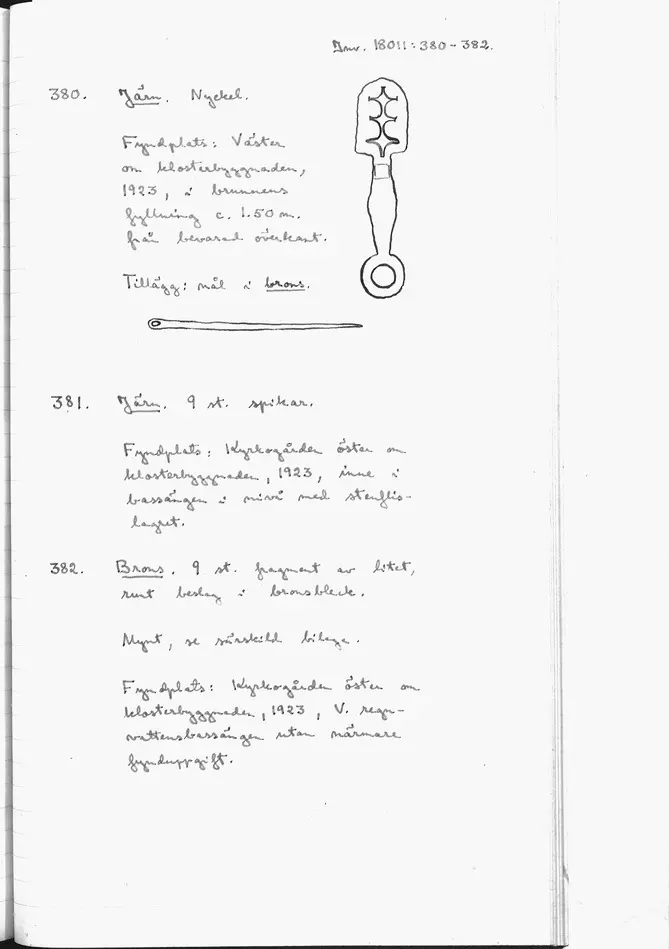 Inv. 18011:380-382.
380. Järn. Nyckel.
Fyndplats: Väster
om klosterbyggnaden,
1923, i brunnens
fyllning c. 1.50 m.
från bevarad överkant.
Tillägg: nål i brons.
381. Järn. 9 st. spikar.
Fyndplats: Kyrkogården öster om
klosterbyggnaden, 1923, inne i
bassängen i nivå med stenflis-
lagret.
382. Brons. 9 st. fragment av litet,
runt beslag i bronsbleck.
Mynt, se särskild bilaga.
Fyndplats: Kyrkogården öster om
klosterbyggnaden, 1923, V. regn-
vattensbassängen utan närmare
fynduppgift.